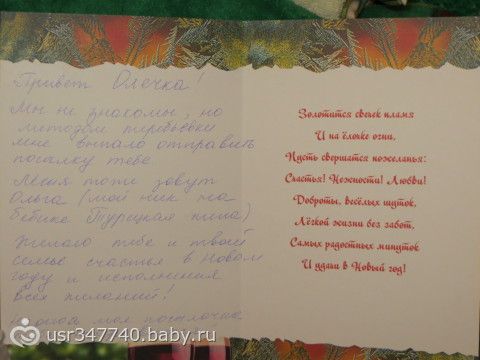 Привет Олечка!
Мы не знакомы, но
методом жеребьевки
мне выпало отправить
посылку тебе.
Меня тоже зовут
Ольга (мой ник на
бебике Турецкая пила)
Желаю тебе и твоей
семье счастья в Новом
году и исполнения
всех желаний!
моя посылочка
Золотится свечек пламя
И на ёлочке огни,
Пусть свершатся пожеланья:
Счастья! Нежности! Любви!
Доброты, весёлых шуток,
Лёгкой жизни без забот,
Самых радостных минуток
И удачи в Новый год!
usr347740.baby.ru